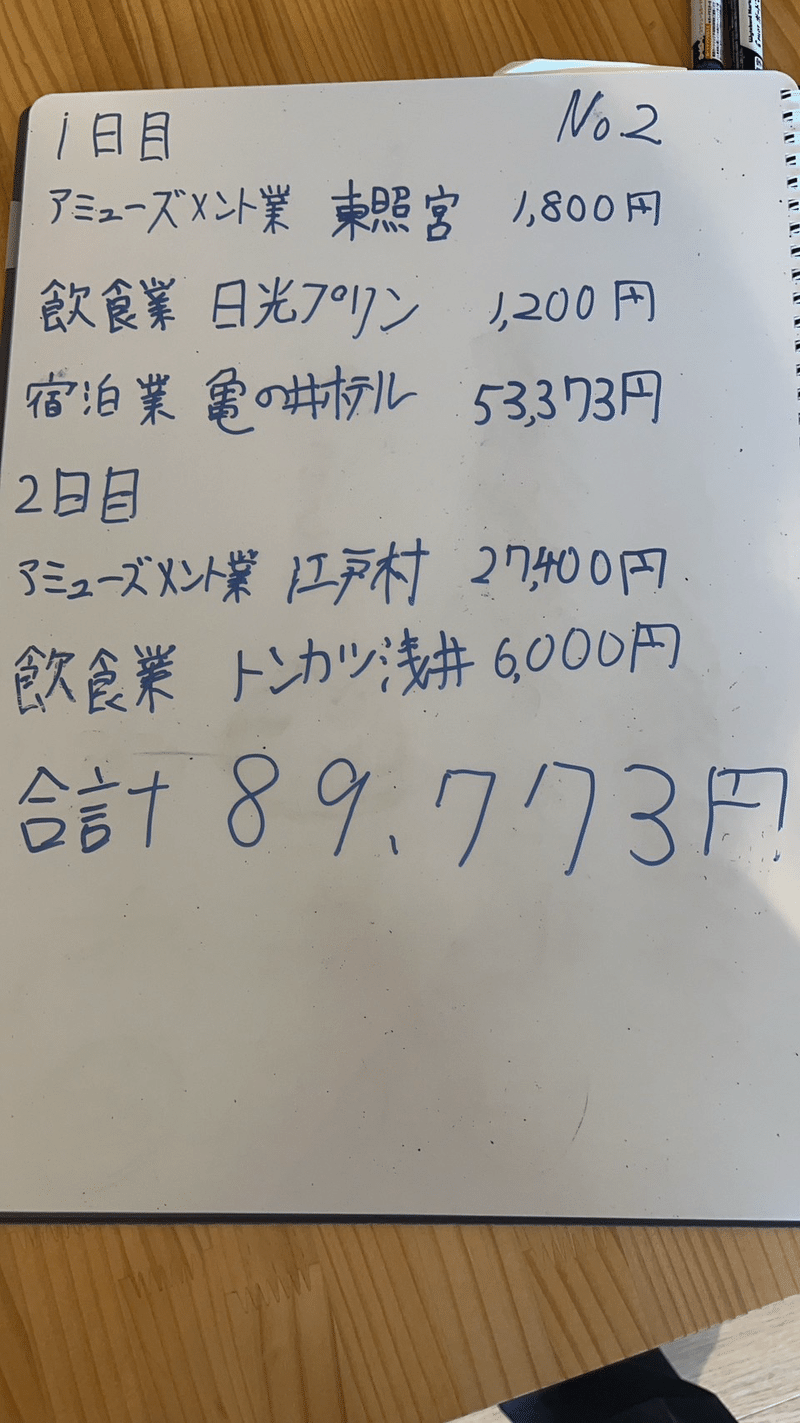 1日目 No2
アミューズメント業 東照宮 1,800円
飲食業 日光プリン 1,200円
宿泊業 亀の井ホテル 53,373円
2日目
アミューズメント業 江戸村 27,400円
飲食業 トンカツ浅井 6,000円
合計 89.773円